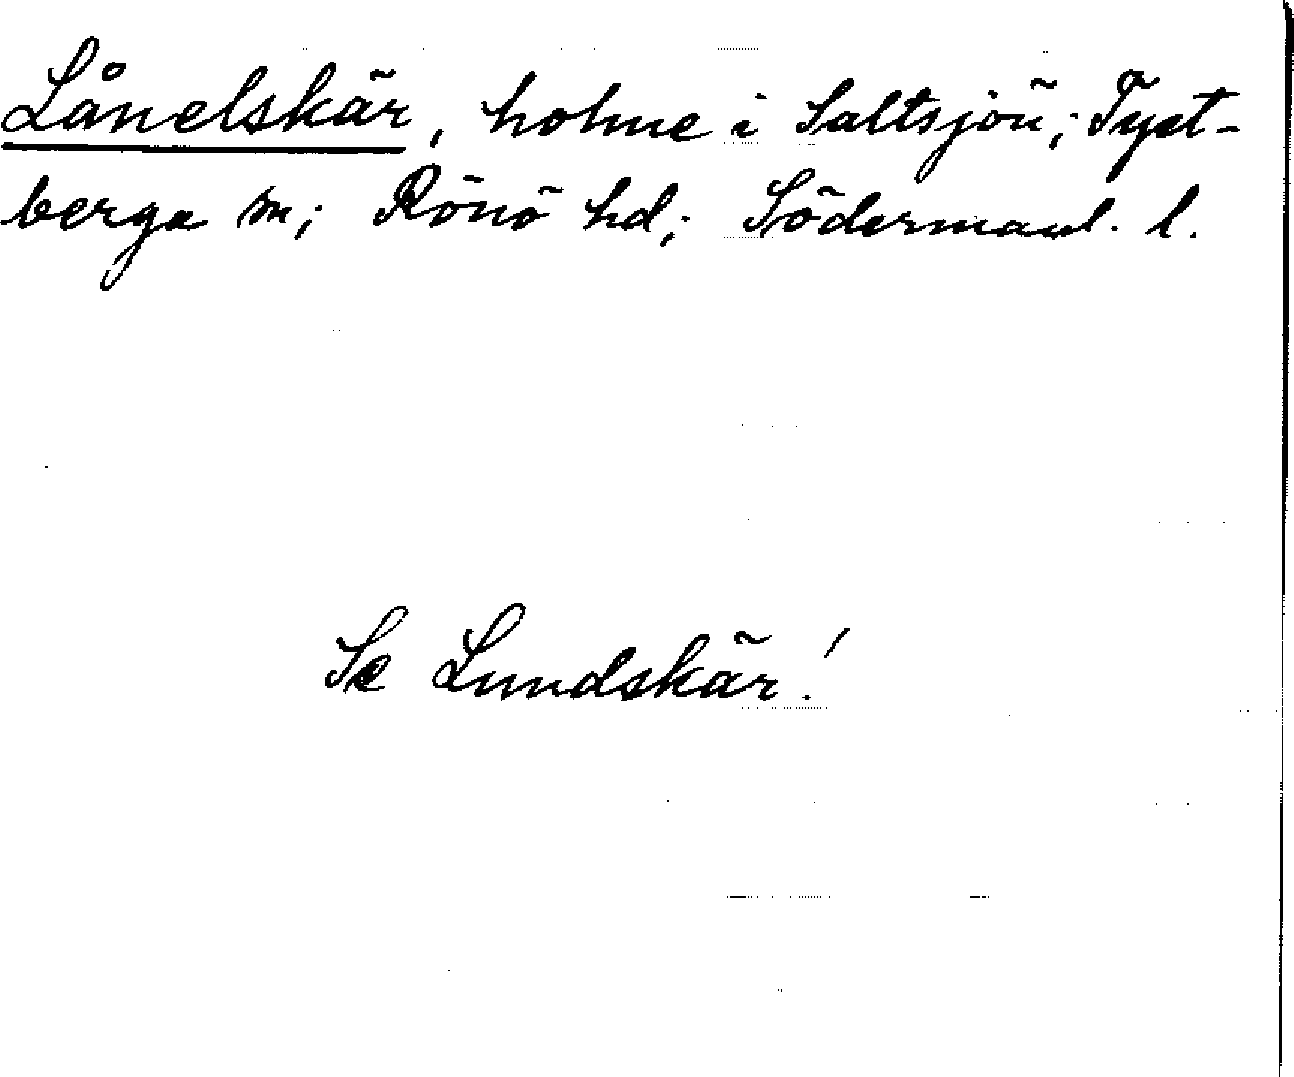 Lånelskär, holme i Saltsjön; Tyst-
berga sn; Rönö hd; Södermanl. l.
Se Lundskär!